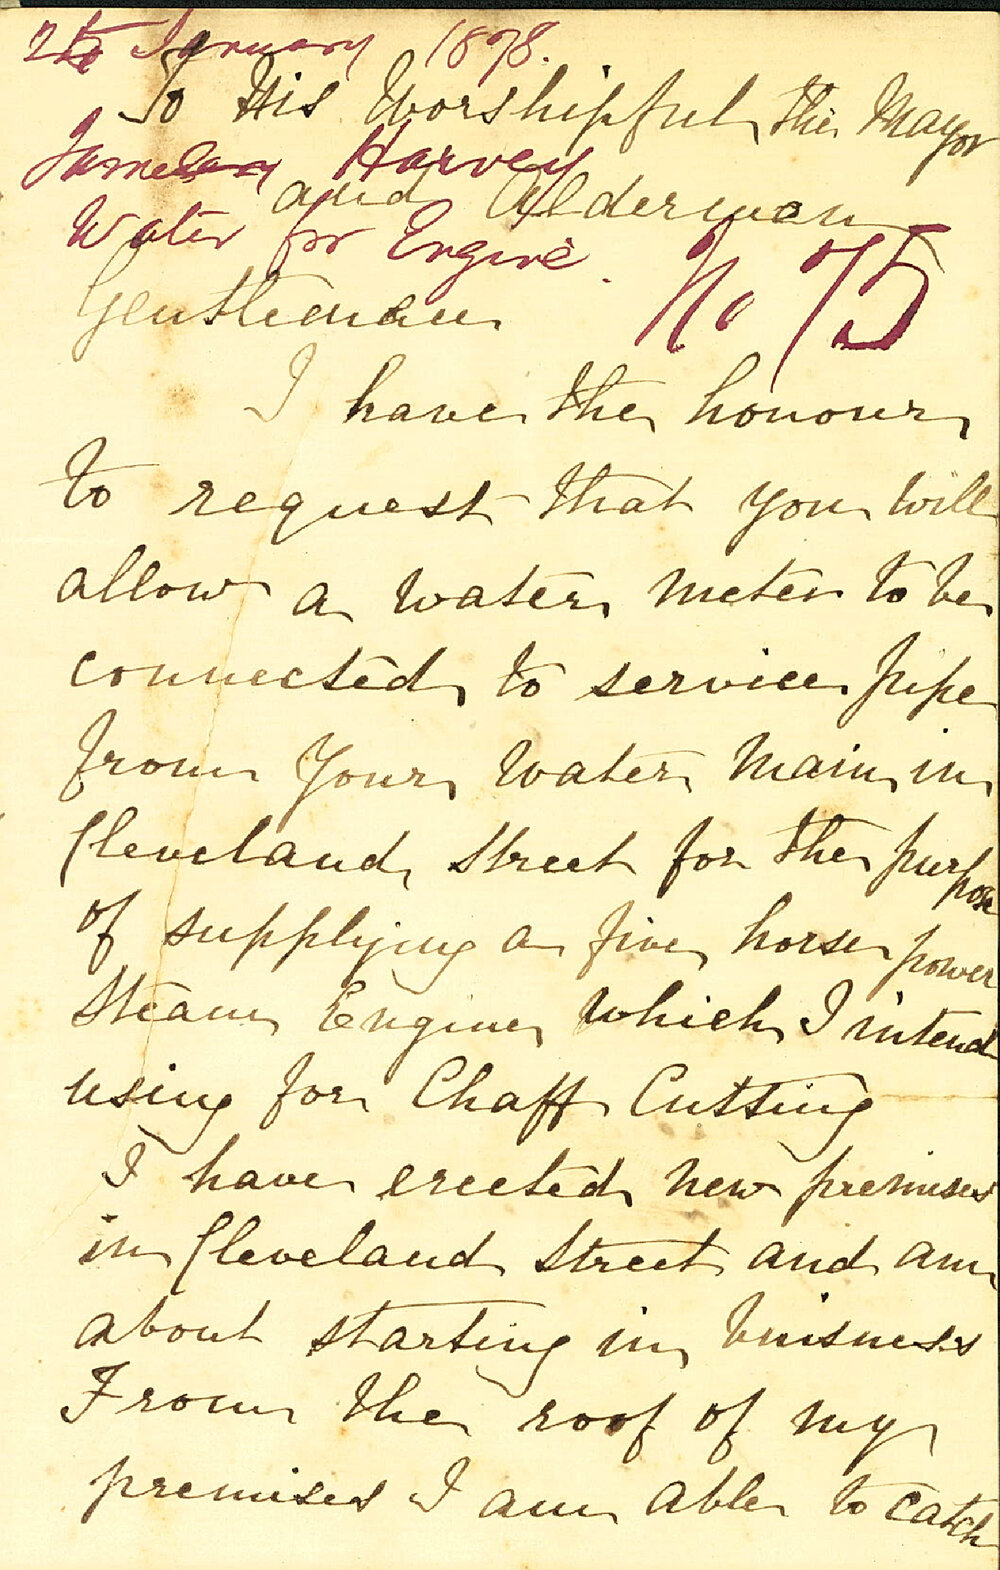 January 1878.
To His Worshipful the Mayor
Harvey
and Alderman
Water for Engine.
No 75
Gentleman
I have the honour
to request that you will
allow a water meter to be
connected to service pipe
from your water main in
Cleveland Street for the purpose
of supplying a five horse power
Steam Engine which I intend
using for Chaff Cutting
I have erected new premises
in Cleveland Street and am
about starting in buisness
From the roof of my
premises I am able to catch